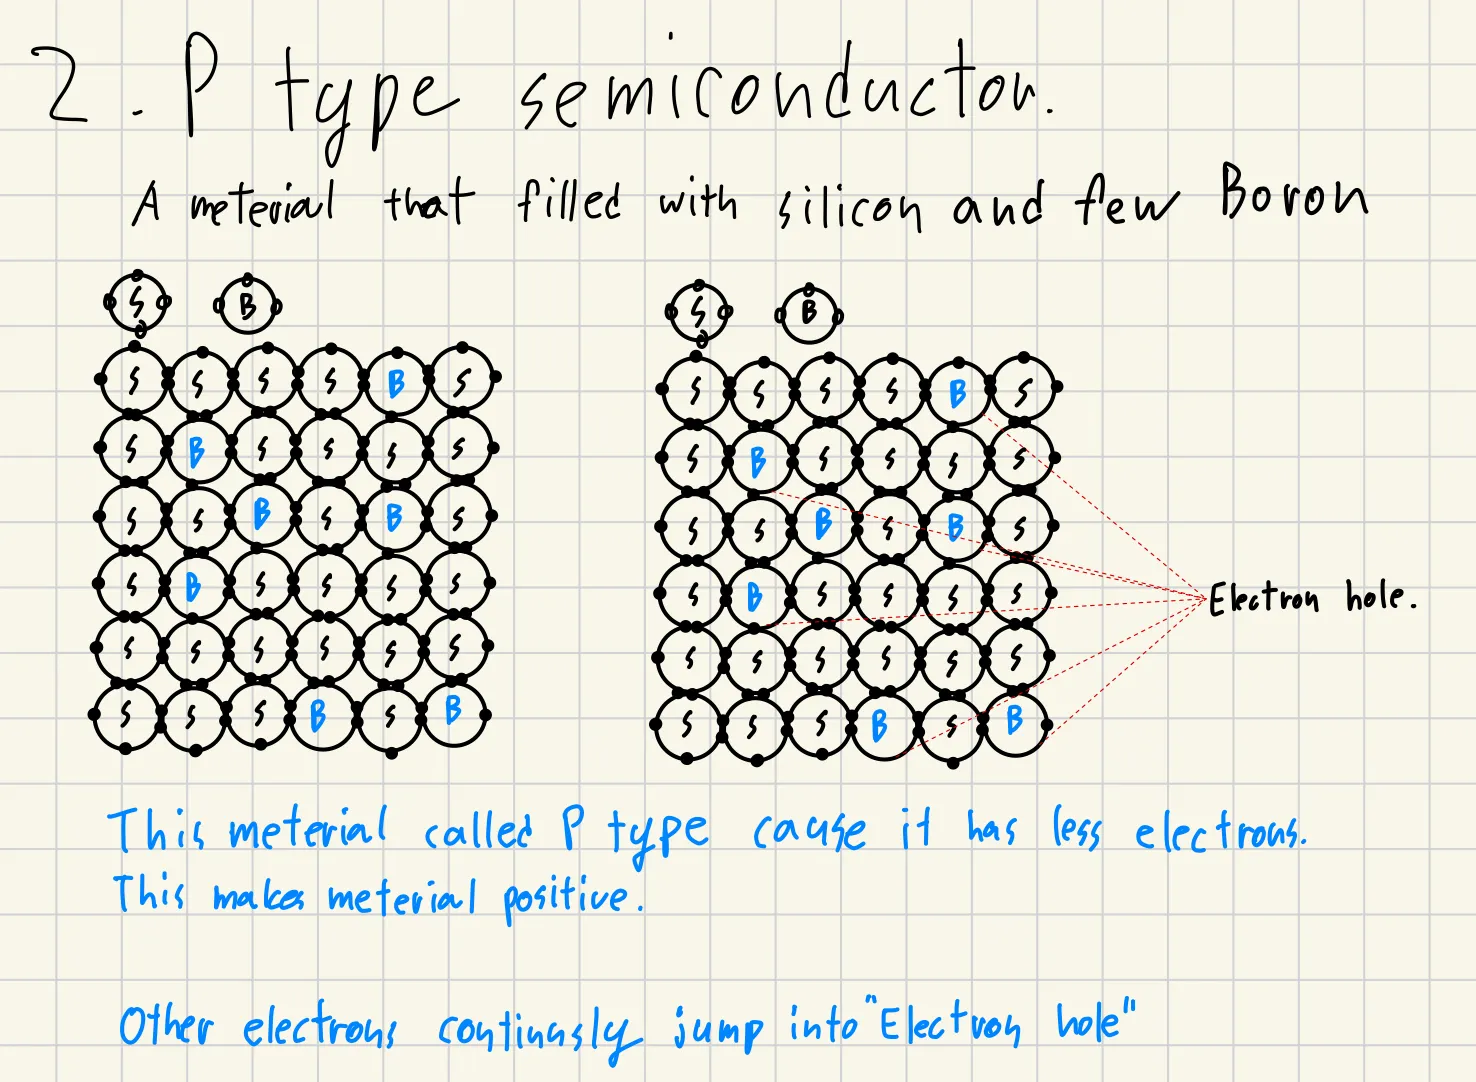 2. P type semiconductor.
A meterial that filled with silicon and few Boron
S B S B
S S S S B S S S S S B S
S B S S S S S B S S S S
S S B S B S S S B S B S
S B S S S S S B S S S S Electron hole.
S S S S S S S S S S S S
S S S B S B S S S B S B
This meterial called P type cause it has less electrons.
This makes meterial positive.
Other electrons continusly jump into "Electron hole"